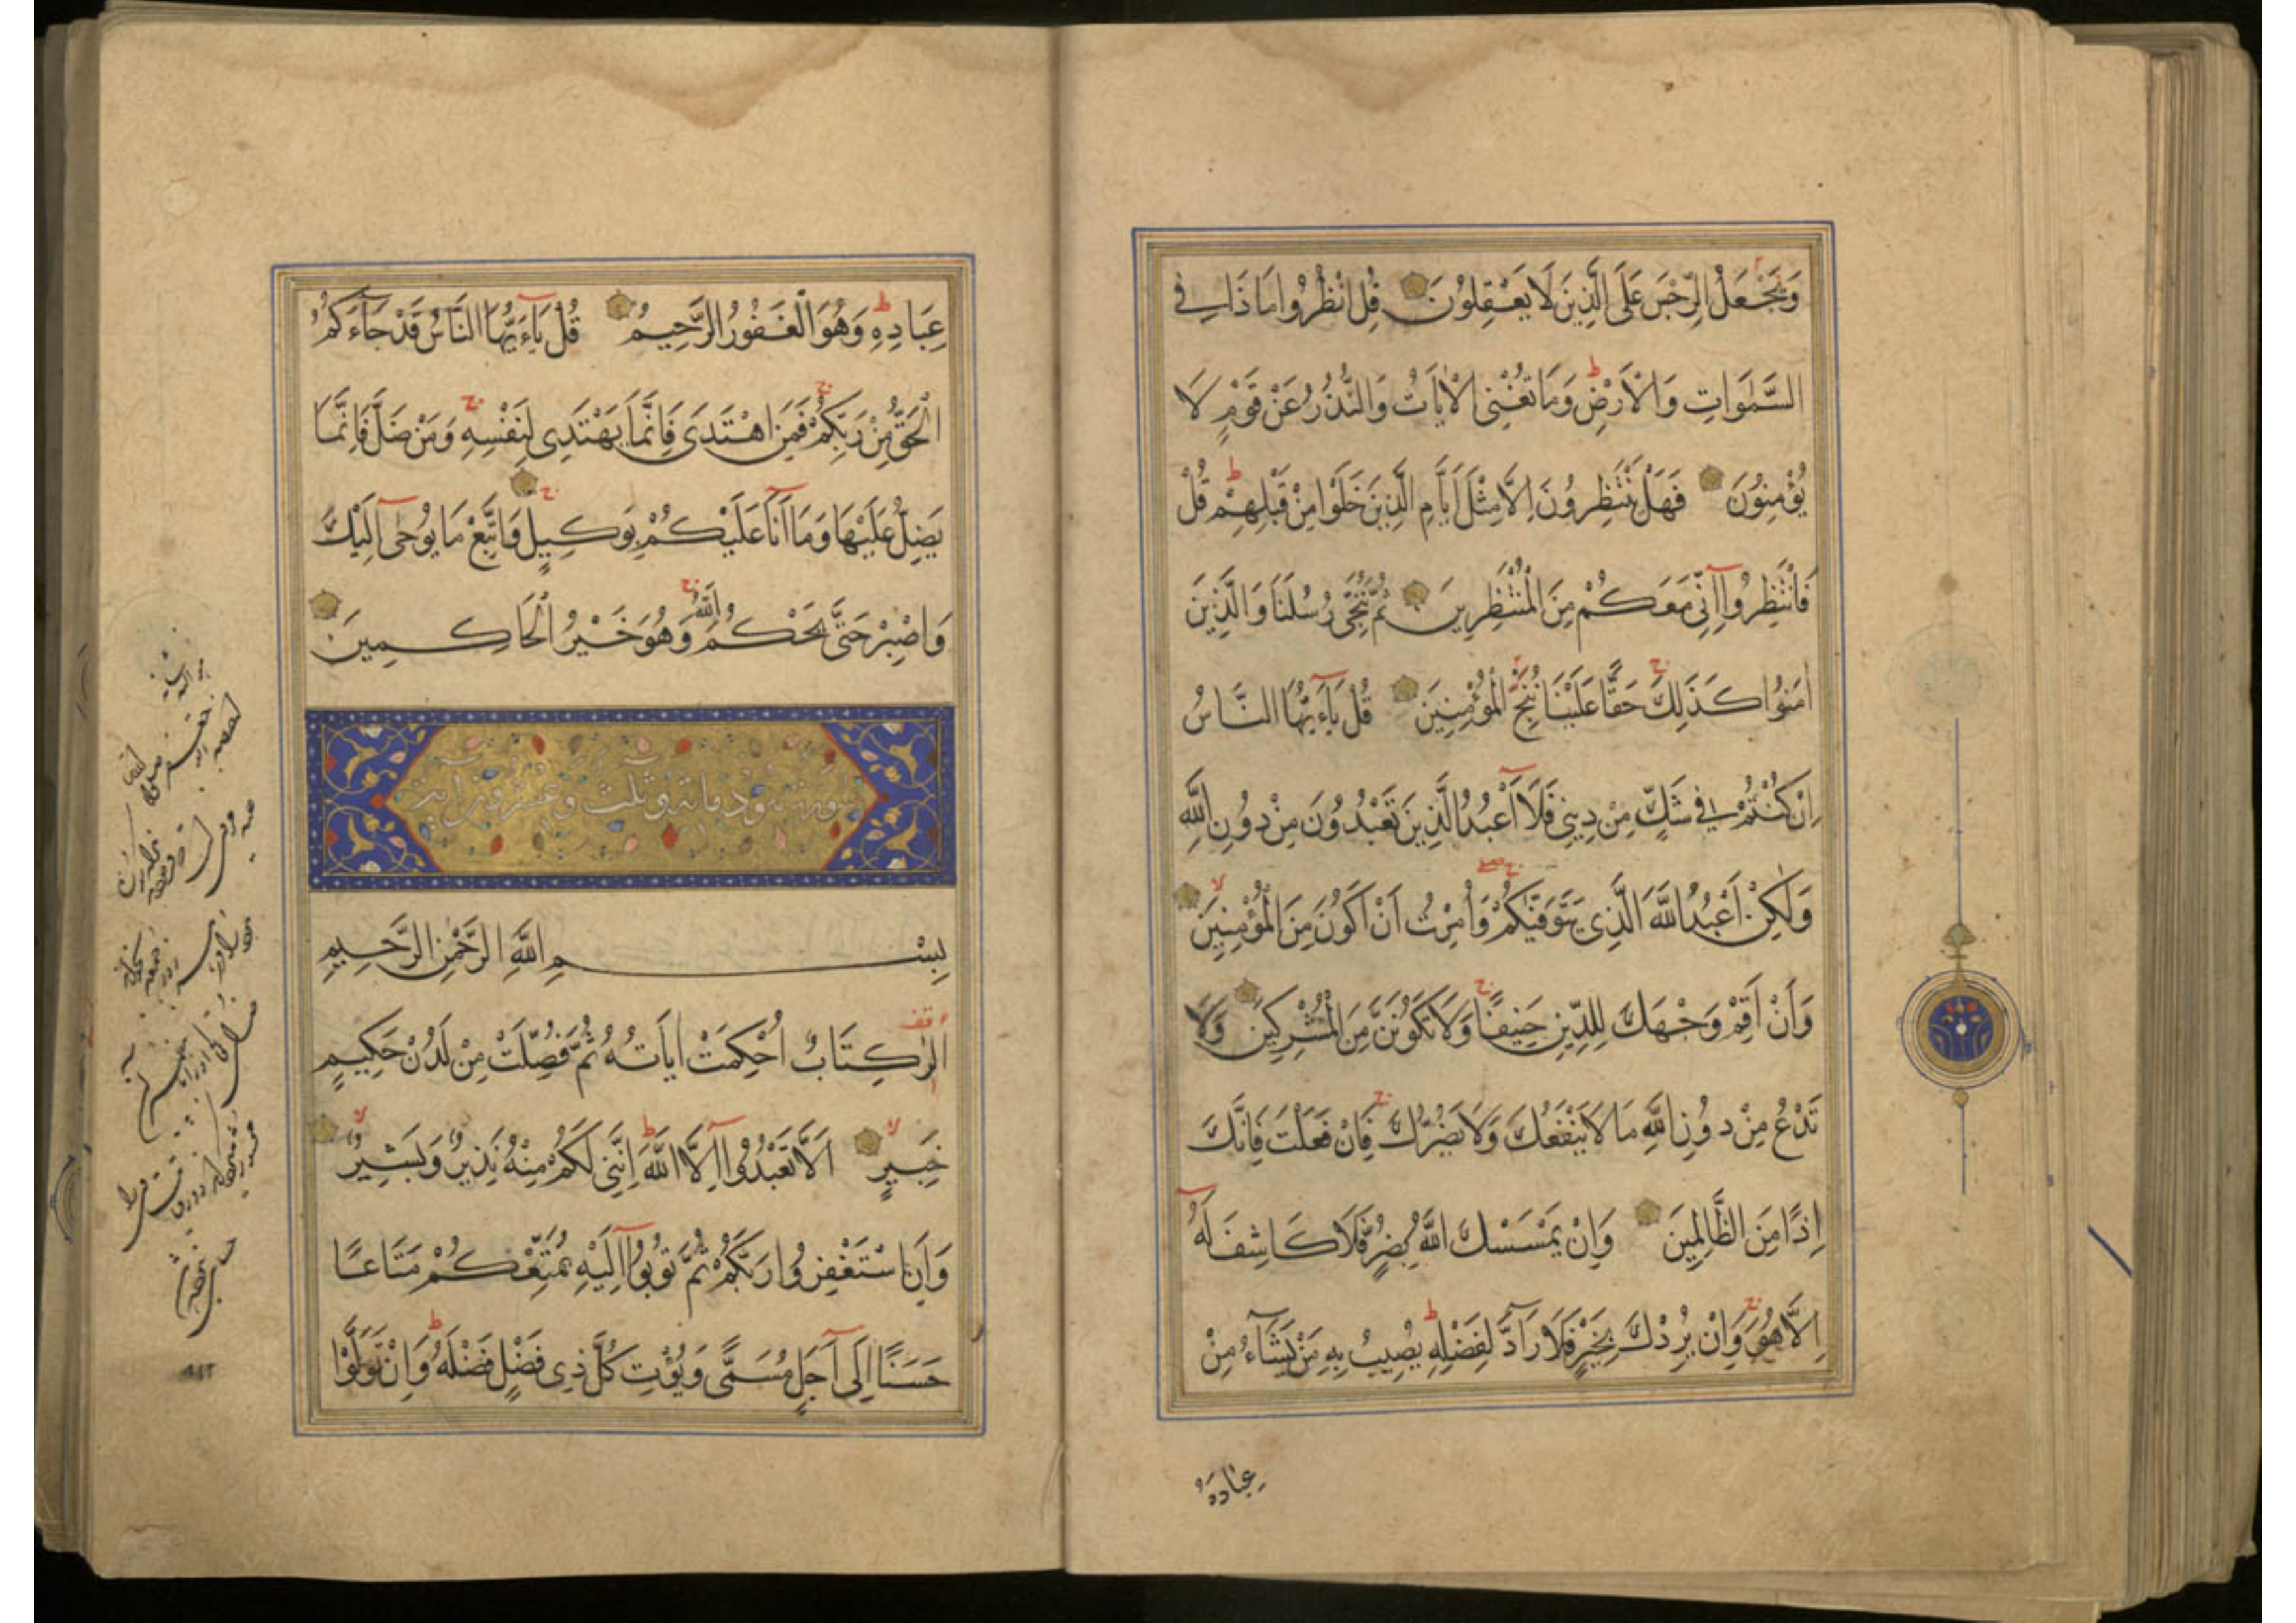 وَيَجْعَلُ الرِّجْسَ عَلَى الَّذِينَ لَا يَعْقِلُونَ قُلِ انْظُرُوا مَا ذَا فِي
السَّمٰوَاتِ وَالْاَرْضِ وَمَا تُغْنِي الْاٰيَاتُ وَالنُّذُرُ عَنْ قَوْمٍ لَا
يُؤْمِنُونَ فَهَلْ يَنْتَظِرُونَ اِلَّا مِثْلَ اَيَّامِ الَّذِينَ خَلَوْا مِنْ قَبْلِهِمْ قُلْ
فَانْتَظِرُوا اِنِّي مَعَكُمْ مِنَ الْمُنْتَظِرِينَ ثُمَّ نُنَجِّي رُسُلَنَا وَالَّذِينَ
اٰمَنُوا كَذٰلِكَ حَقًّا عَلَيْنَا نُنْجِ الْمُؤْمِنِينَ قُلْ يَاءَيُّهَا النَّاسُ
اِنْ كُنْتُمْ فِي شَكٍّ مِنْ دِينِي فَلَا اَعْبُدُ الَّذِينَ تَعْبُدُونَ مِنْ دُونِ اللّٰهِ
وَلٰكِنْ اَعْبُدُ اللّٰهَ الَّذِي يَتَوَفّٰيكُمْ وَاُمِرْتُ اَنْ اَكُونَ مِنَ الْمُؤْمِنِينَ
وَاَنْ اَقِمْ وَجْهَكَ لِلدِّينِ حَنِيفًا وَلَا تَكُونَنَّ مِنَ الْمُشْرِكِينَ وَلَا
تَدْعُ مِنْ دُونِ اللّٰهِ مَا لَا يَنْفَعُكَ وَلَا يَضُرُّكَ فَاِنْ فَعَلْتَ فَاِنَّكَ
اِذًا مِنَ الظَّالِمِينَ وَاِنْ يَمْسَسْكَ اللّٰهُ بِضُرٍّ فَلَا كَاشِفَ لَهُ
اِلَّا هُوَ وَاِنْ يُرِدْكَ بِخَيْرٍ فَلَا رَادَّ لِفَضْلِهِ يُصِيبُ بِهِ مَنْ يَشَاءُ مِنْ
عِبَادِهِ
عِبَادِهِ وَهُوَ الْغَفُورُ الرَّحِيمُ قُلْ يَاءَيُّهَا النَّاسُ قَدْ جَاءَكُمُ
الْحَقُّ مِنْ رَبِّكُمْ فَمَنِ اهْتَدَى فَاِنَّمَا يَهْتَدِي لِنَفْسِهِ وَمَنْ ضَلَّ فَاِنَّمَا
يَضِلُّ عَلَيْهَا وَمَا اَنَا عَلَيْكُمْ بِوَكِيلٍ وَاتَّبِعْ مَا يُوحٰى اِلَيْكَ
وَاصْبِرْ حَتَّى يَحْكُمَ اللّٰهُ وَهُوَ خَيْرُ الْحَاكِمِينَ
سورة هود مائة وثلث وعشرون اية
بِسْمِ اللّٰهِ الرَّحْمٰنِ الرَّحِيمِ
الٓرٰ كِتَابٌ اُحْكِمَتْ اٰيَاتُهُ ثُمَّ فُصِّلَتْ مِنْ لَدُنْ حَكِيمٍ
خَبِيرٍ اَلَّا تَعْبُدُوا اِلَّا اللّٰهَ اِنَّنِي لَكُمْ مِنْهُ نَذِيرٌ وَبَشِيرٌ
وَاَنِ اسْتَغْفِرُوا رَبَّكُمْ ثُمَّ تُوبُوا اِلَيْهِ يُمَتِّعْكُمْ مَتَاعًا
حَسَنًا اِلَى اَجَلٍ مُسَمًّى وَيُؤْتِ كُلَّ ذِي فَضْلٍ فَضْلَهُ وَاِنْ تَوَلَّوْا